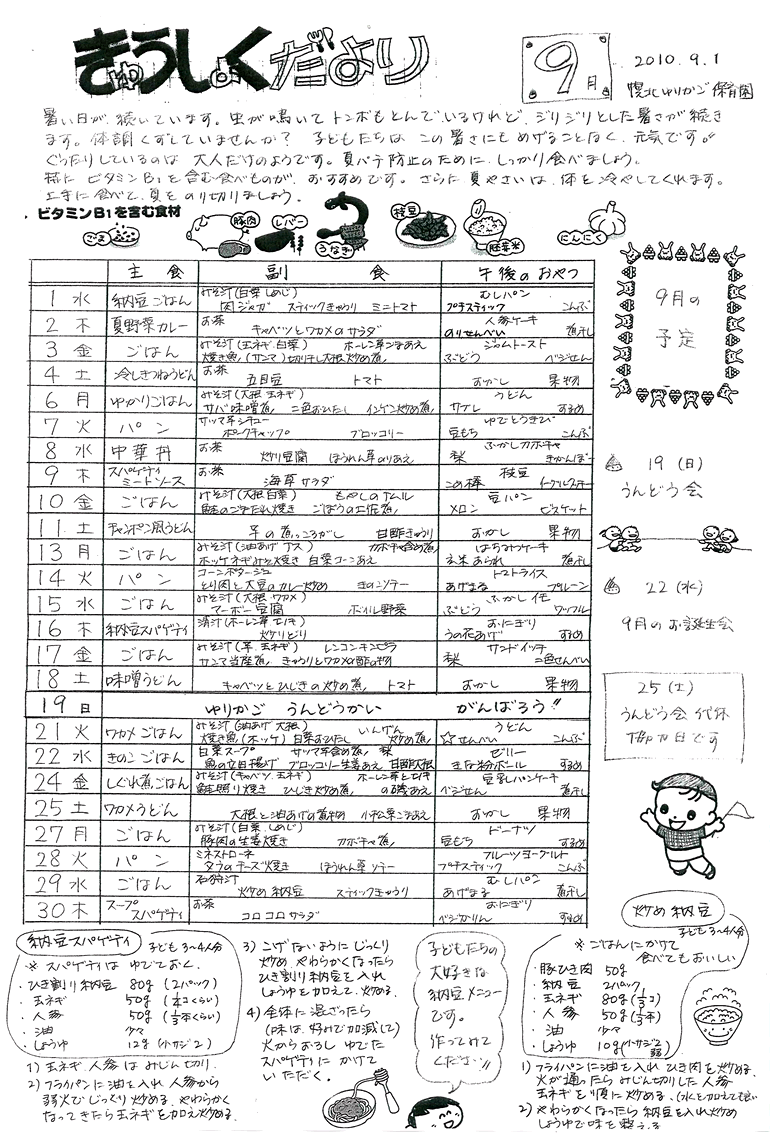 きゅうしょくだより
9月
2010.9.1
幌北ゆりかご保育園
暑い日が、続いています。虫が鳴いてトンボもとんでいるけれど、ジリジリとした暑さが続き
ます。体調くずしていませんか？ 子どもたちは この暑さにもめげることなく、元気です。
ぐったりしているのは 大人だけのようです。夏バテ防止のために、しっかり食べましょう。
特に ビタミンB₁を含む食べものが、おすすめです。さらに夏やさいは、体を冷やしてくれます。
上手に食べて、夏をのり切りましょう。
ビタミンB₁を含む食材
ごま 豚肉 レバー うなぎ 枝豆 胚芽米 にんにく
主食 副食 午後のおやつ
1 水 納豆ごはん みそ汁(白菜 しめじ) 肉ジャガ スティックきゅうり ミニトマト むしパン プチスティック こんぶ
2 木 夏野菜カレー お茶 キャベツとワカメのサラダ 人参ケーキ のりせんべい 煮干し
3 金 ごはん みそ汁(玉ネギ 白菜) ホーレン草ごまあえ 焼き魚(サンマ) 切り干し大根炒め煮 ジャムトースト ぶどう ベジせん
4 土 冷しきつねうどん お茶 五目豆 トマト おかし 果物
6 月 ゆかりごはん みそ汁(大根 玉ネギ) サバ味噌煮 二色おひたし インゲン炒め煮 うどん サブレ するめ
7 火 パン サツマ芋シチュー ポークチャップ ブロッコリー ゆでとうきび 豆もち こんぶ
8 水 中華丼 お茶 炒り豆腐 ほうれん草のりあえ ふかしカボチャ 梨 きかんぼー
9 木 スパゲティミートソース お茶 海草サラダ 枝豆 この棒
10 金 ごはん みそ汁(大根 白菜) もやしのナムル 鮭のごまだれ焼き ごぼうの土佐煮 豆パン メロン ビスケット
11 土 チャンポン風うどん 芋の煮っころがし 甘酢きゅうり おかし 果物
13 月 ごはん みそ汁(油あげ ナス) カボチャ含め煮 ホッケネギみそ焼き 白菜コーンあえ はちみつケーキ 玄米あられ 煮干し
14 火 パン コーンポタージュ とり肉と大豆のカレー炒め きのこソテー トマトライス あげまる プルーン
15 水 ごはん みそ汁(大根 ワカメ) マーボー豆腐 ボイル野菜 ふかしイモ ぶどう ワッフル
16 木 納豆スパゲティ 清汁(ホーレン草 もやし) 炒りどり おにぎり うの花あげ するめ
17 金 ごはん みそ汁(芋 玉ネギ) レンコンキンピラ サンマ当座煮 きゅうりとワカメの酢の物 サンドイッチ 梨 二色せんべい
18 土 味噌うどん キャベツとひじきの炒め煮 トマト おかし 果物
19 日 ゆりかご うんどうかい がんばろう!!
21 火 ワカメごはん みそ汁(油あげ 大根) いんげん炒め煮 焼き魚(ホッケ) 白菜おひたし うどん ☆せんべい こんぶ
22 水 きのこごはん 白菜スープ サツマ芋含め煮 梨 魚の立田揚げ ブロッコリー生姜あえ 甘酢大根 ゼリー きな粉ボール するめ
24 金 しぐれ煮ごはん みそ汁(キャベツ 玉ネギ) ホーレン草ともやしの磯あえ 鮭照り焼き ひじき炒め煮 豆乳パンケーキ ベジせん 煮干し
25 土 ワカメうどん 大根と油あげの煮物 小松菜ごまあえ おかし 果物
27 月 ごはん みそ汁(白菜 しめじ) 豚肉の生姜焼き カボチャ煮 ドーナツ 豆もち するめ
28 火 パン ミネストローネ タラのチーズ焼き ほうれん草ソテー フルーツヨーグルト プチスティック こんぶ
29 水 ごはん 石狩汁 炒め納豆 スティックきゅうり むしパン あげまる 煮干し
30 木 スープスパゲティ お茶 コロコロサラダ おにぎり ベジかりん するめ
9月の
予定
19(日)
うんどう会
22(水)
9月のお誕生会
25(土)
うんどう会代休
協力日です
納豆スパゲティ 子ども3~4人分
※ スパゲティは ゆでておく。
・ひき割り納豆 80g (2パック)
・玉ネギ 50g (1/4コくらい)
・人参 50g (1/3本くらい)
・油 少々
・しょうゆ 12g (小サジ2)
1) 玉ネギ、人参は みじん切り。
2) フライパンに油を入れ 人参から
弱火でじっくり炒める。やわらかく
なってきたら玉ネギを加え炒める。
3) こげないようにじっくり
炒め やわらかくなったら
ひき割り納豆を入れ
しょうゆを加えて、炒める。
4) 全体に混ざったら
(味は、好みで加減して)
火からおろし ゆでた
スパゲティに かけて
いただく。
子どもたちの
大好きな
納豆メニュー
です。
作ってみて
ください!!
炒め納豆
子ども3~4人分
※ ごはんにかけて
食べてもおいしい
・豚ひき肉 50g
・納豆 2パック
・玉ネギ 80g (1/3コ)
・人参 50g (1/3本)
・油 少々
・しょうゆ 10g (小サジ2弱)
1) フライパンに油を入れ ひき肉を炒める。
火が通ったら みじん切りした 人参
玉ネギを順に炒める。(水を加えても良い)
2) やわらかくなったら 納豆を入れ炒め
しょうゆで味を整える